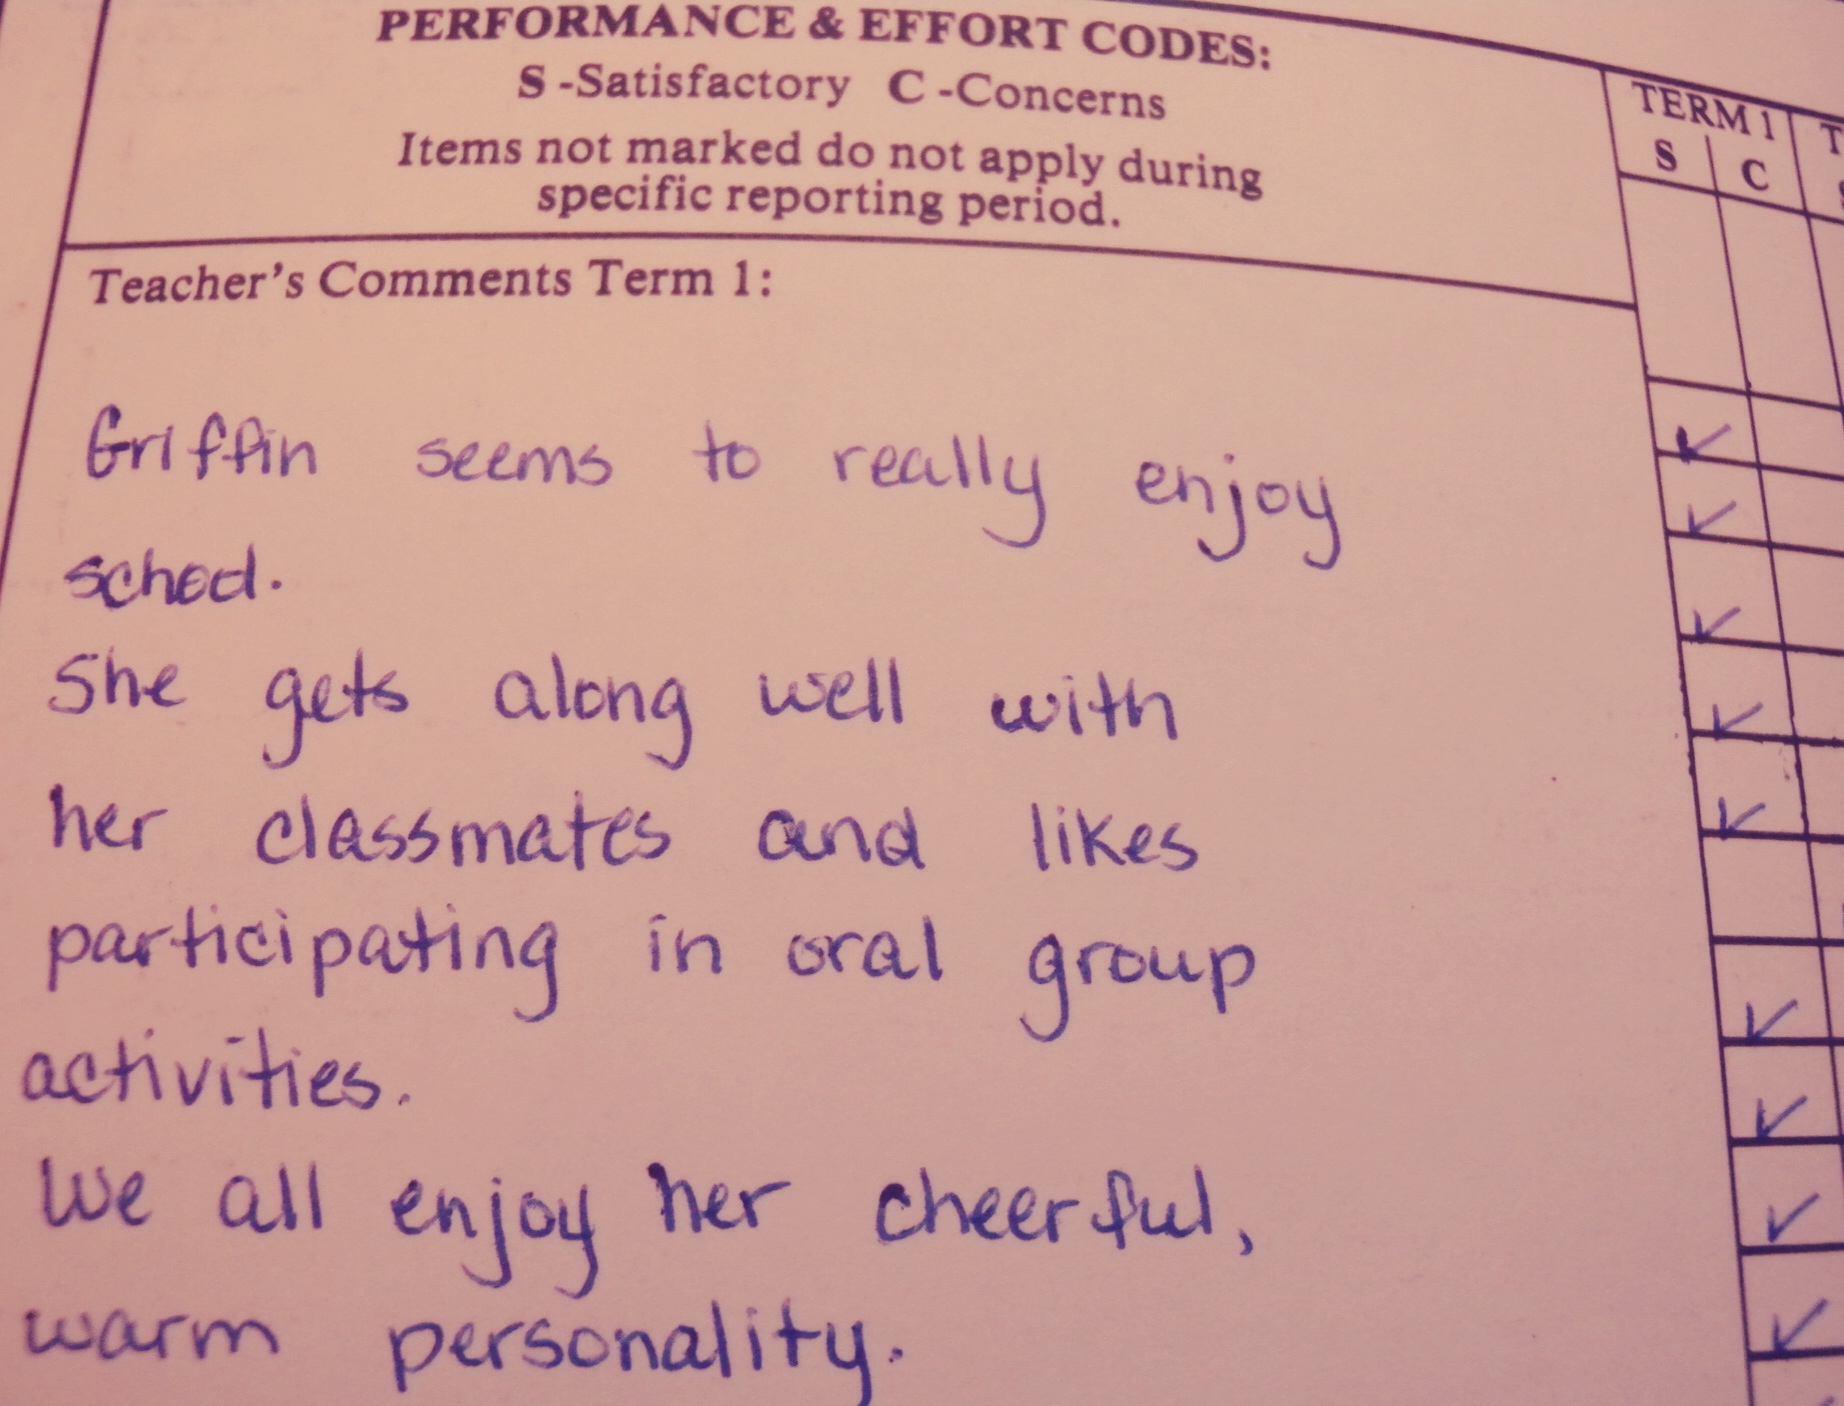 PERFORMANCE & EFFORT CODES:
S -Satisfactory C -Concerns
Items not marked do not apply during
specific reporting period.
TERM 1
S C
Teacher's Comments Term 1:
Griffin seems to really enjoy
school.
She gets along well with
her classmates and likes
participating in oral group
activities.
We all enjoy her cheerful,
warm personality.